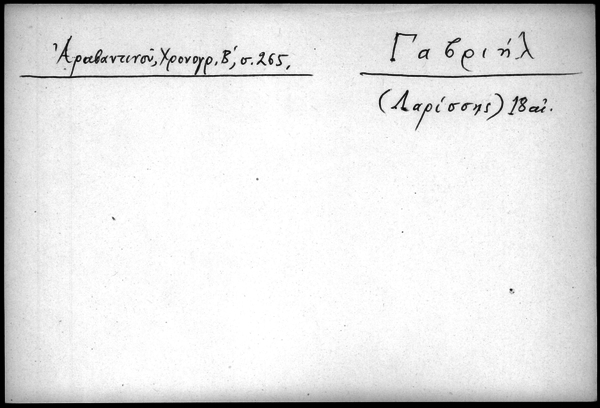 Ἀραβαντινοῦ, Χρονογρ. Β΄, σ. 265.
Γαβριήλ
(Λαρίσσης) 18 αἰ.